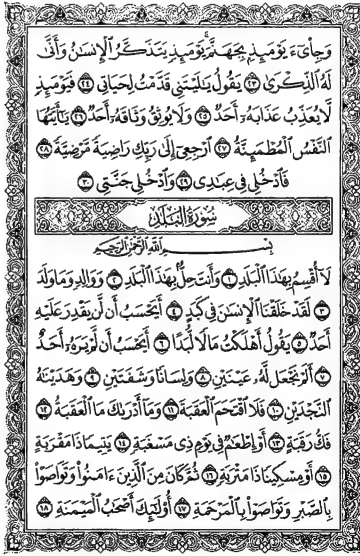 وَجِاْىٓءَ يَوۡمَئِذِۭ بِجَهَنَّمَۚ يَوۡمَئِذٖ يَتَذَكَّرُ ٱلۡإِنسَٰنُ وَأَنَّىٰ
لَهُ ٱلذِّكۡرَىٰ ٢٣ يَقُولُ يَٰلَيۡتَنِي قَدَّمۡتُ لِحَيَاتِي ٢٤ فَيَوۡمَئِذٖ
لَّا يُعَذِّبُ عَذَابَهُۥٓ أَحَدٞ ٢٥ وَلَا يُوثِقُ وَثَاقَهُۥٓ أَحَدٞ ٢٦ يَٰٓأَيَّتُهَا
ٱلنَّفۡسُ ٱلۡمُطۡمَئِنَّةُ ٢٧ ٱرۡجِعِيٓ إِلَىٰ رَبِّكِ رَاضِيَةٗ مَّرۡضِيَّةٗ ٢٨
فَٱدۡخُلِي فِي عِبَٰدِي ٢٩ وَٱدۡخُلِي جَنَّتِي ٣٠
سُورَةُ ٱلۡبَلَدِ
بِسۡمِ ٱللَّهِ ٱلرَّحۡمَٰنِ ٱلرَّحِيمِ
لَآ أُقۡسِمُ بِهَٰذَا ٱلۡبَلَدِ ١ وَأَنتَ حِلُّۢ بِهَٰذَا ٱلۡبَلَدِ ٢ وَوَالِدٖ وَمَا وَلَدَ
٣ لَقَدۡ خَلَقۡنَا ٱلۡإِنسَٰنَ فِي كَبَدٍ ٤ أَيَحۡسَبُ أَن لَّن يَقۡدِرَ عَلَيۡهِ
أَحَدٞ ٥ يَقُولُ أَهۡلَكۡتُ مَالٗا لُّبَدًا ٦ أَيَحۡسَبُ أَن لَّمۡ يَرَهُۥٓ أَحَدٌ
٧ أَلَمۡ نَجۡعَل لَّهُۥ عَيۡنَيۡنِ ٨ وَلِسَانٗا وَشَفَتَيۡنِ ٩ وَهَدَيۡنَٰهُ
ٱلنَّجۡدَيۡنِ ١٠ فَلَا ٱقۡتَحَمَ ٱلۡعَقَبَةَ ١١ وَمَآ أَدۡرَىٰكَ مَا ٱلۡعَقَبَةُ ١٢
فَكُّ رَقَبَةٍ ١٣ أَوۡ إِطۡعَٰمٞ فِي يَوۡمٖ ذِي مَسۡغَبَةٖ ١٤ يَتِيمٗا ذَا مَقۡرَبَةٍ
١٥ أَوۡ مِسۡكِينٗا ذَا مَتۡرَبَةٖ ١٦ ثُمَّ كَانَ مِنَ ٱلَّذِينَ ءَامَنُواْ وَتَوَاصَوۡاْ
بِٱلصَّبۡرِ وَتَوَاصَوۡاْ بِٱلۡمَرۡحَمَةِ ١٧ أُوْلَٰٓئِكَ أَصۡحَٰبُ ٱلۡمَيۡمَنَةِ ١٨